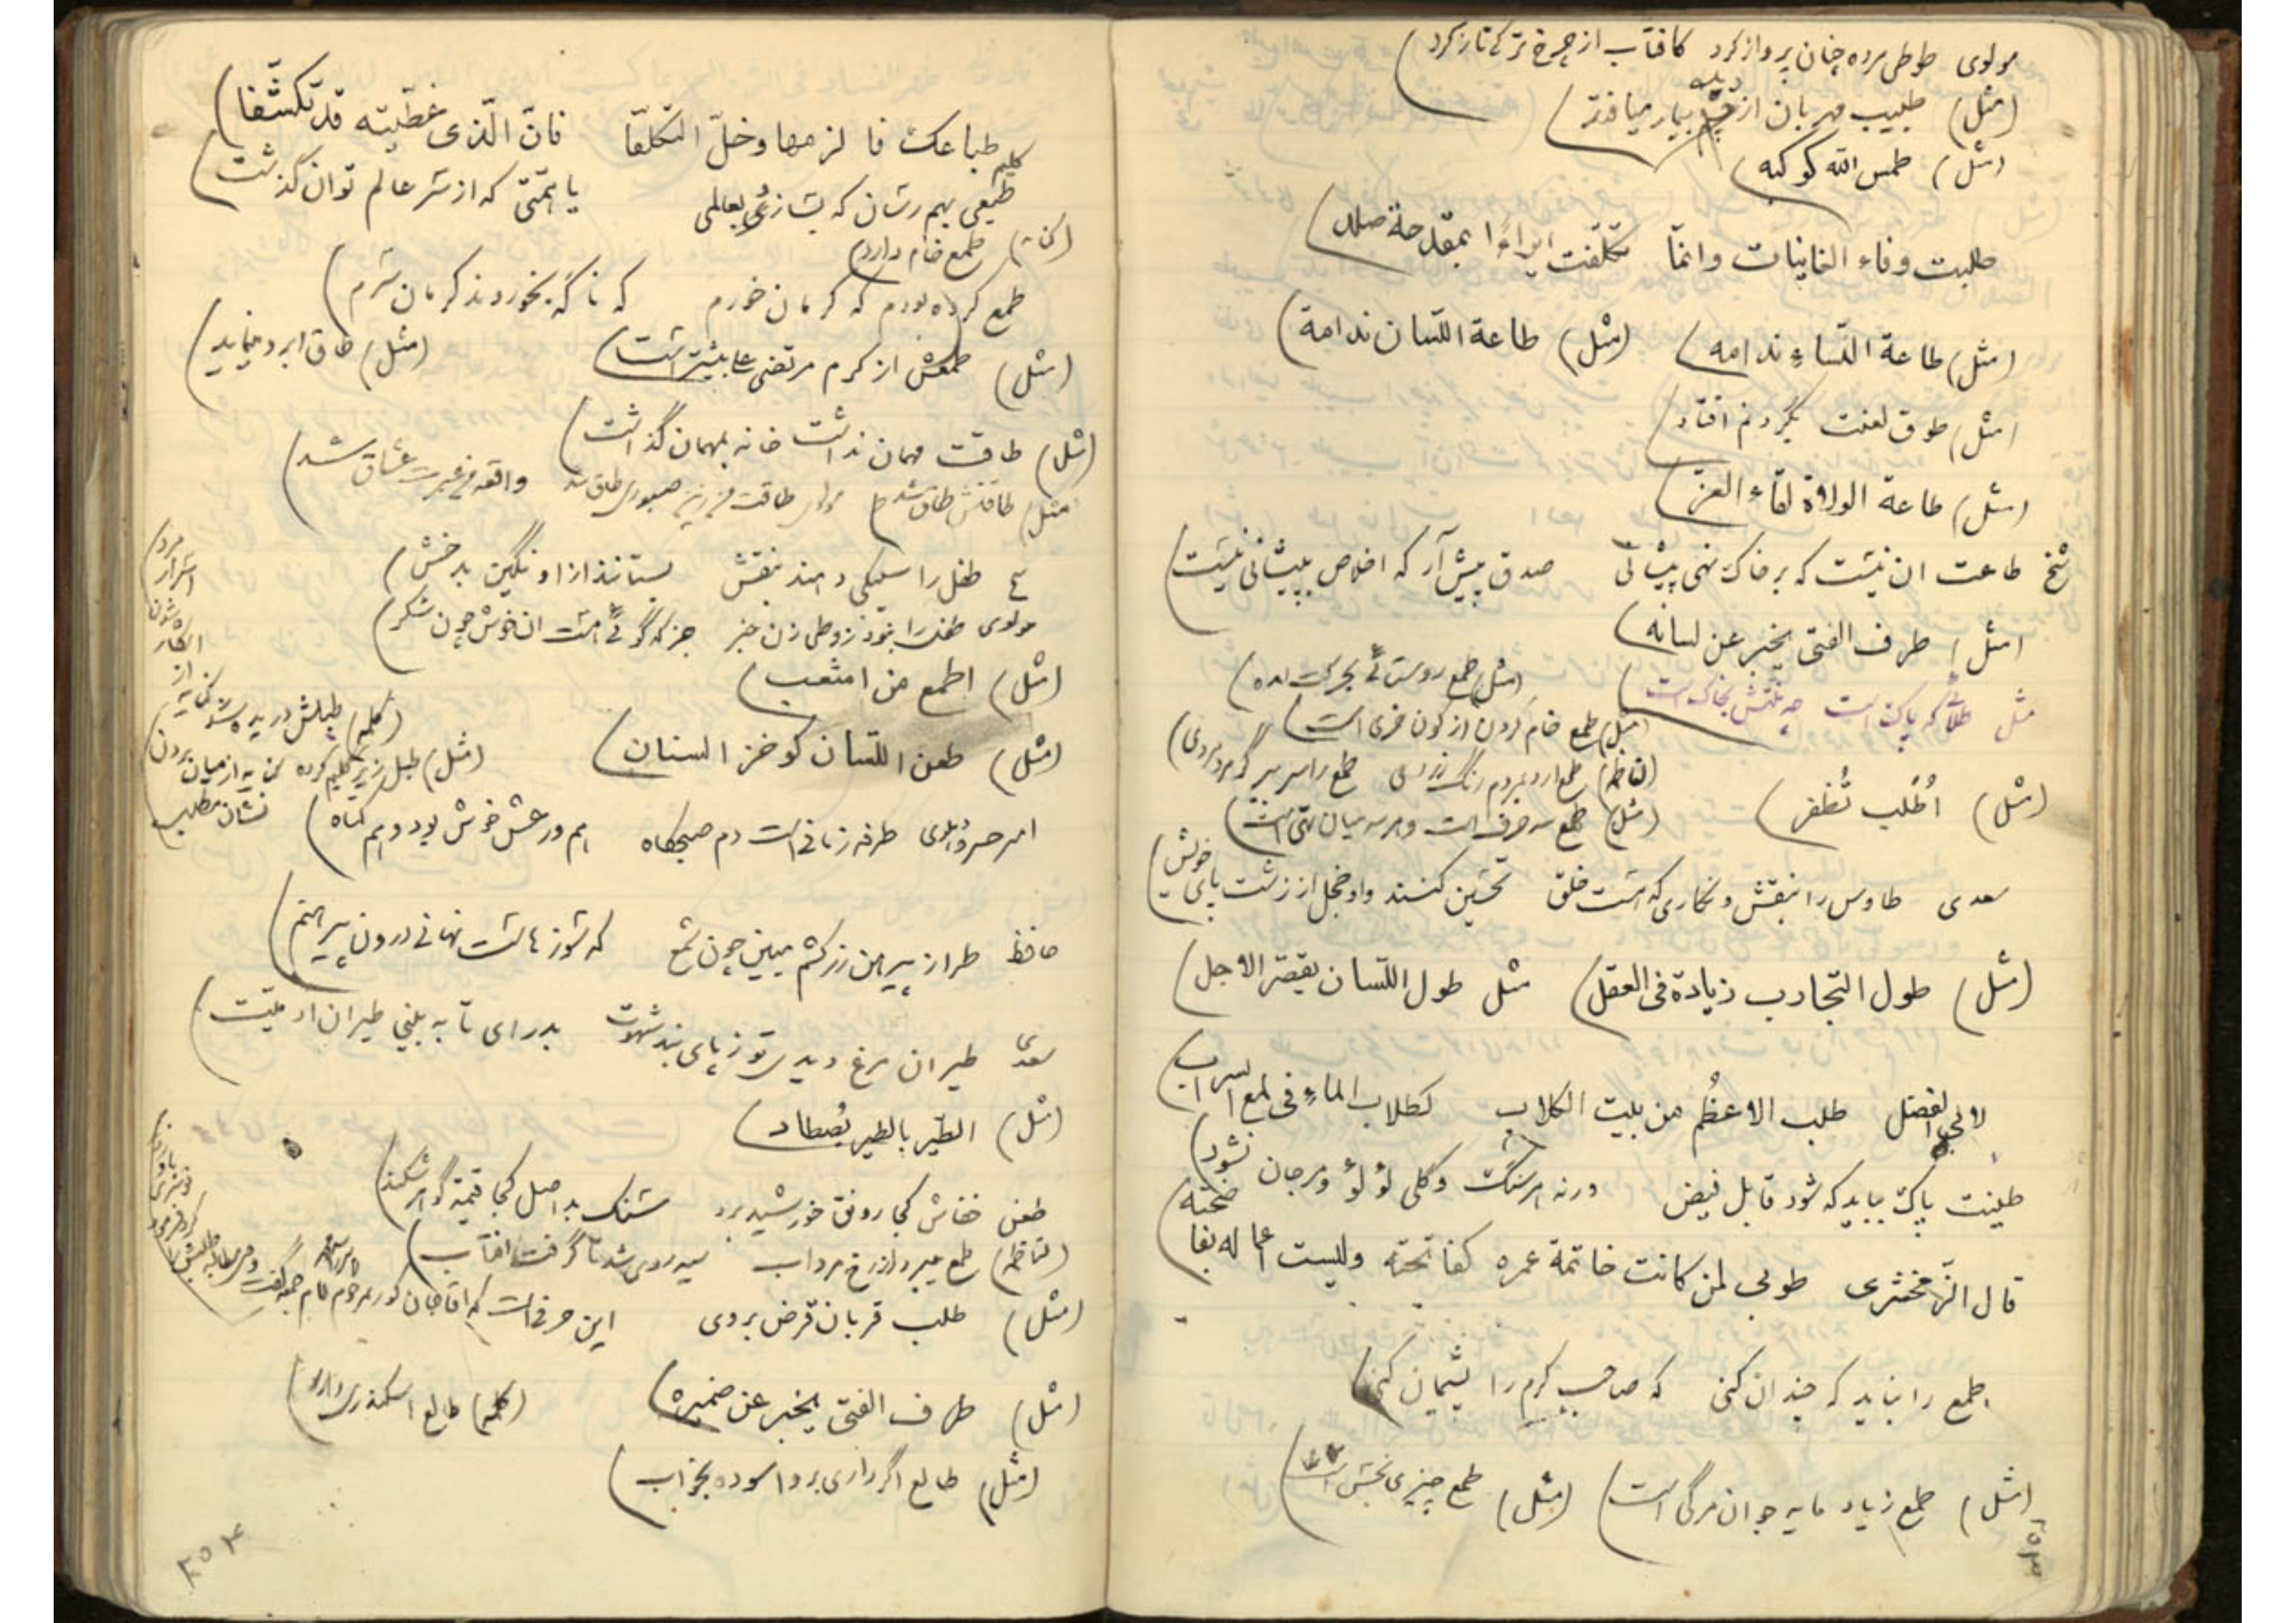 مولوی طوطی مرده چنان پرواز کرد کافتاب از چرخ ترکتاز کرد
(مثل) طبیب مهربان از دیده بیمار میافتد
(مثل) طمس الله کوکبه
طلبت وفاء الغانیات وانمّا تکلّفت ایراءًا بمقدحة صلد
(مثل) طاعة النّساءِ ندامه (مثل) طاعة اللّسان ندامة
(مثل) طوق لعنت بگردنم افتاد
(مثل) طاعة الولاة بقاء العز
شیخ طاعت ان نیست که بر خاک نهی پیشانی صدق پیش آر که اخلاص بپیشانی نیست
(مثل) طرف الفتی یخبر عن لسانه
(مثل) طمع روستائی بحرکت امده
مثل طلائی که پاک است چه منتش بخاک است
(مثل) طمع خام کردن از کون خری است
(ناظم) طمع ارد بمردم رنگ زردی طمع را سر ببر گر مرد مردی
(مثل) اُطْلب تُظفر
(مثل) طمع سه حرف است و هر سه میان تهی است
سعدی طاوس را بنقش و نگاری که هست خلق تحسین کنند واو خجل از زشت پای خویش
(مثل) طول التجارب زیادة فی العقل مثل طول اللّسان یقصّر الاجل
لابی الفضل طلب الاعظُم من بیت الکلاب کطلاب الماءِ فی لمع السراب
طینت پاک بباید که شود قابل فیض ورنه هر سنگ و گلی لؤلؤ و مرجان نشود
قال الزّمخشری طوبی لمن کانت خاتمة عمره کفاتحته ولیست اعماله بفاضحته
طمع را نباید که چندان کنی که صاحب کرم را پشیمان کنی
(مثل) طمع زیاد مایه جوان مرگی است (مثل) طمع چیزی نجس است
۲۵۳
طباعک فالزمها وخلّ التکلّفا فانّ الّذی غطّیته قد تکشّفا
کلیم طبعی بهم رسان که بسازی بعالمی یا همّتی که از سر عالم توان گذشت
(کنایه) طمع خام دارد
طمع کرده بودم که کرمان خورم که ناگه بخوردند کرمان سرم
(مثل) طمعش از کرم مرتضی علی بیشتر است (مثل) طاق ابرو مینماید
(مثل) طاقت مهمان نداشت خانه بمهمان گذاشت
مثل طاقتش طاق شد
واقعه عبرت عشاق شد
طفل را سیلکی دهند بنقش بستانند ازاو نگین بدخش
مولوی طفل را نبود ز وطی زن خبر جز که گوئی هست ان خوش چون شکر
(مثل) اطمع من اشعب
(مثل) طعن اللّسان کوخز السنان
(کلمه) طبلش دریده شد کنایه از
اسرار مردم
(مثل) طبل زیر گلیم کرده کنایه از میان بردن نشان مطلب
امیر خسرو دهلوی طرفه زمانی است دم صبحگاه هم در عشل خوش بود و هم گناه
حافظ طراز پیرهن زرکشم مبین چون شمع که سوزهاست نهانی درون پیرهنم
سعدی طیران مرغ دیدی تو ز پای بند شهوت بدرای تا به بینی طیران ادمیّت
(مثل) الطّیر بالطیر یُصطاد
طعن خفاش کجا رونق خورشید برد سنگ بد اصل کجا قیمة گوهر شکند
(ناظم) طمع میبرد از رخ مرد اب سیه روی شد تا گرفت افتاب
(مثل) طلب قربان قرض بروی این حرفی است که
(مثل) طرف الفتی یخبر عن ضمیره (کلمه) طالع اسکندری دارد
(مثل) طالع اگر داری برو اسوده بخواب
۲۵۴